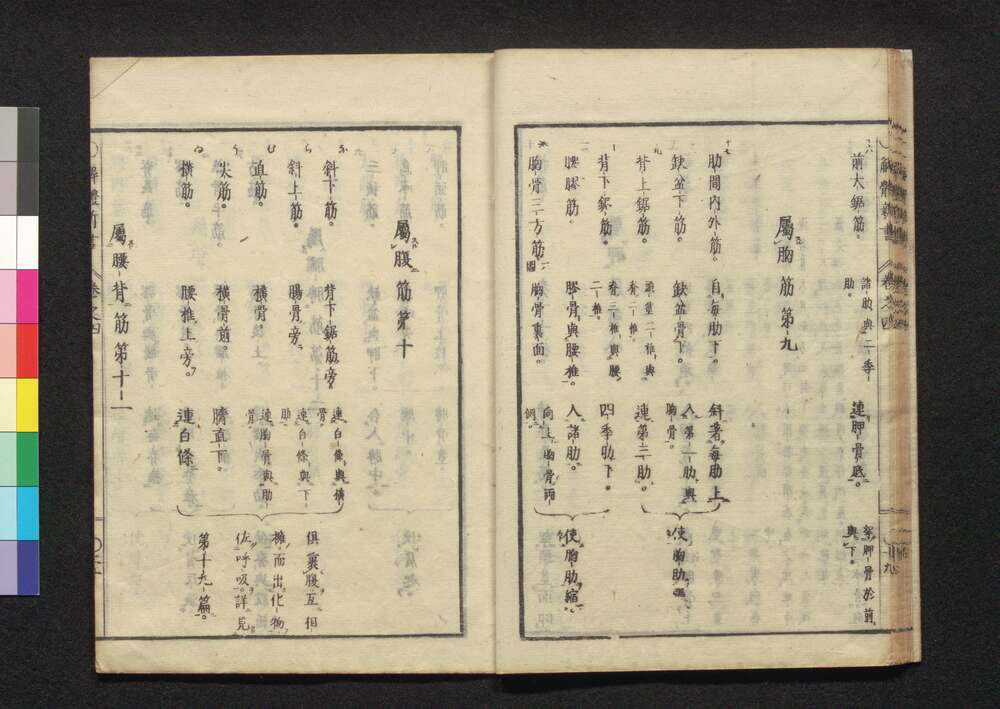 前大鋸筋。 諸肋與二季肋。 連胛骨底。 牽胛骨於前與下。
屬胸筋第九
肋間內外筋。 自每肋下。 斜著每肋上
缺盆下筋。 缺盆骨下。 入第一肋與胸骨。
背上鋸筋。 連第三肋。 使胸肋
背下鋸筋。 脊三椎與腰二椎。 四季肋下
腰膠筋。 膠骨與腰椎。 入諸肋。 使胸肋縮。
胸骨三方筋 胸骨裏面。 向上胸骨兩側。
解體新書 卷之四
屬腹筋第十
斜下筋。 背下鋸筋旁 連白條與橫骨。 俱裹腹互相
斜上筋。 腸骨旁。 連白條與下肋 擁而出化物
直筋。 橫骨 連胸骨與肋骨 佐呼吸。詳見
尖筋。 橫骨前。 臍直下。 第十九篇。
橫筋。 腰椎上旁。 連白條
屬腰背筋第十一
卷之四